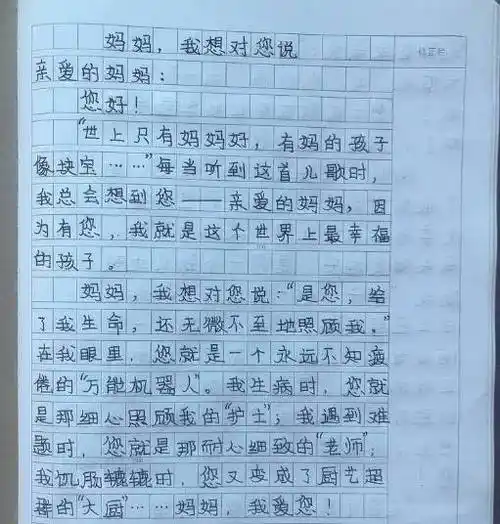 妈妈，我想对您说
亲爱的妈妈：
您好！
“世上只有妈妈好，有妈的孩子
像块宝……”每当听到这首儿歌时，
我总会想到您——亲爱的妈妈，因
为有您，我就是这个世界上最幸福
的孩子。
妈妈，我想对您说：“是您，给
了我生命，还无微不至地照顾我。”
在我眼里，您就是一个永远不知疲
倦的“万能机器人”。我生病时，您就
是那细心照顾我的“护士”；我遇到难
题时，您就是那耐心细致的“老师”；
我饥肠辘辘时，您又变成了厨艺超
群的“大厨”……妈妈，我爱您！